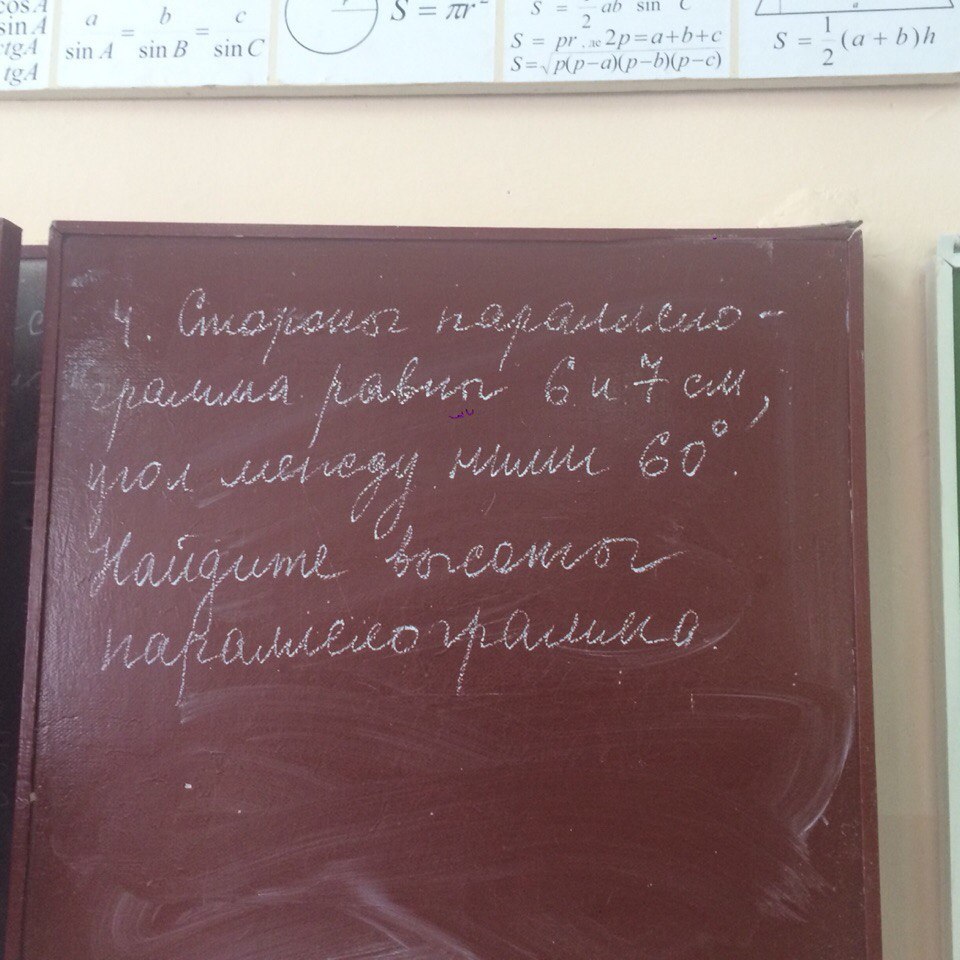 cosA
sinA
ctgA
tgA
a/sin A = b/sin B = c/sin C
S = πr²
S = 1/2 ab sin C
S = pr , де 2p=a+b+c
S=√p(p−a)(p−b)(p−c)
a
S = 1/2 (a + b)h
4. Стороны параллело-
грамма равны 6 и 7 см,
угол между ними 60°.
Найдите высоты
параллелограмма